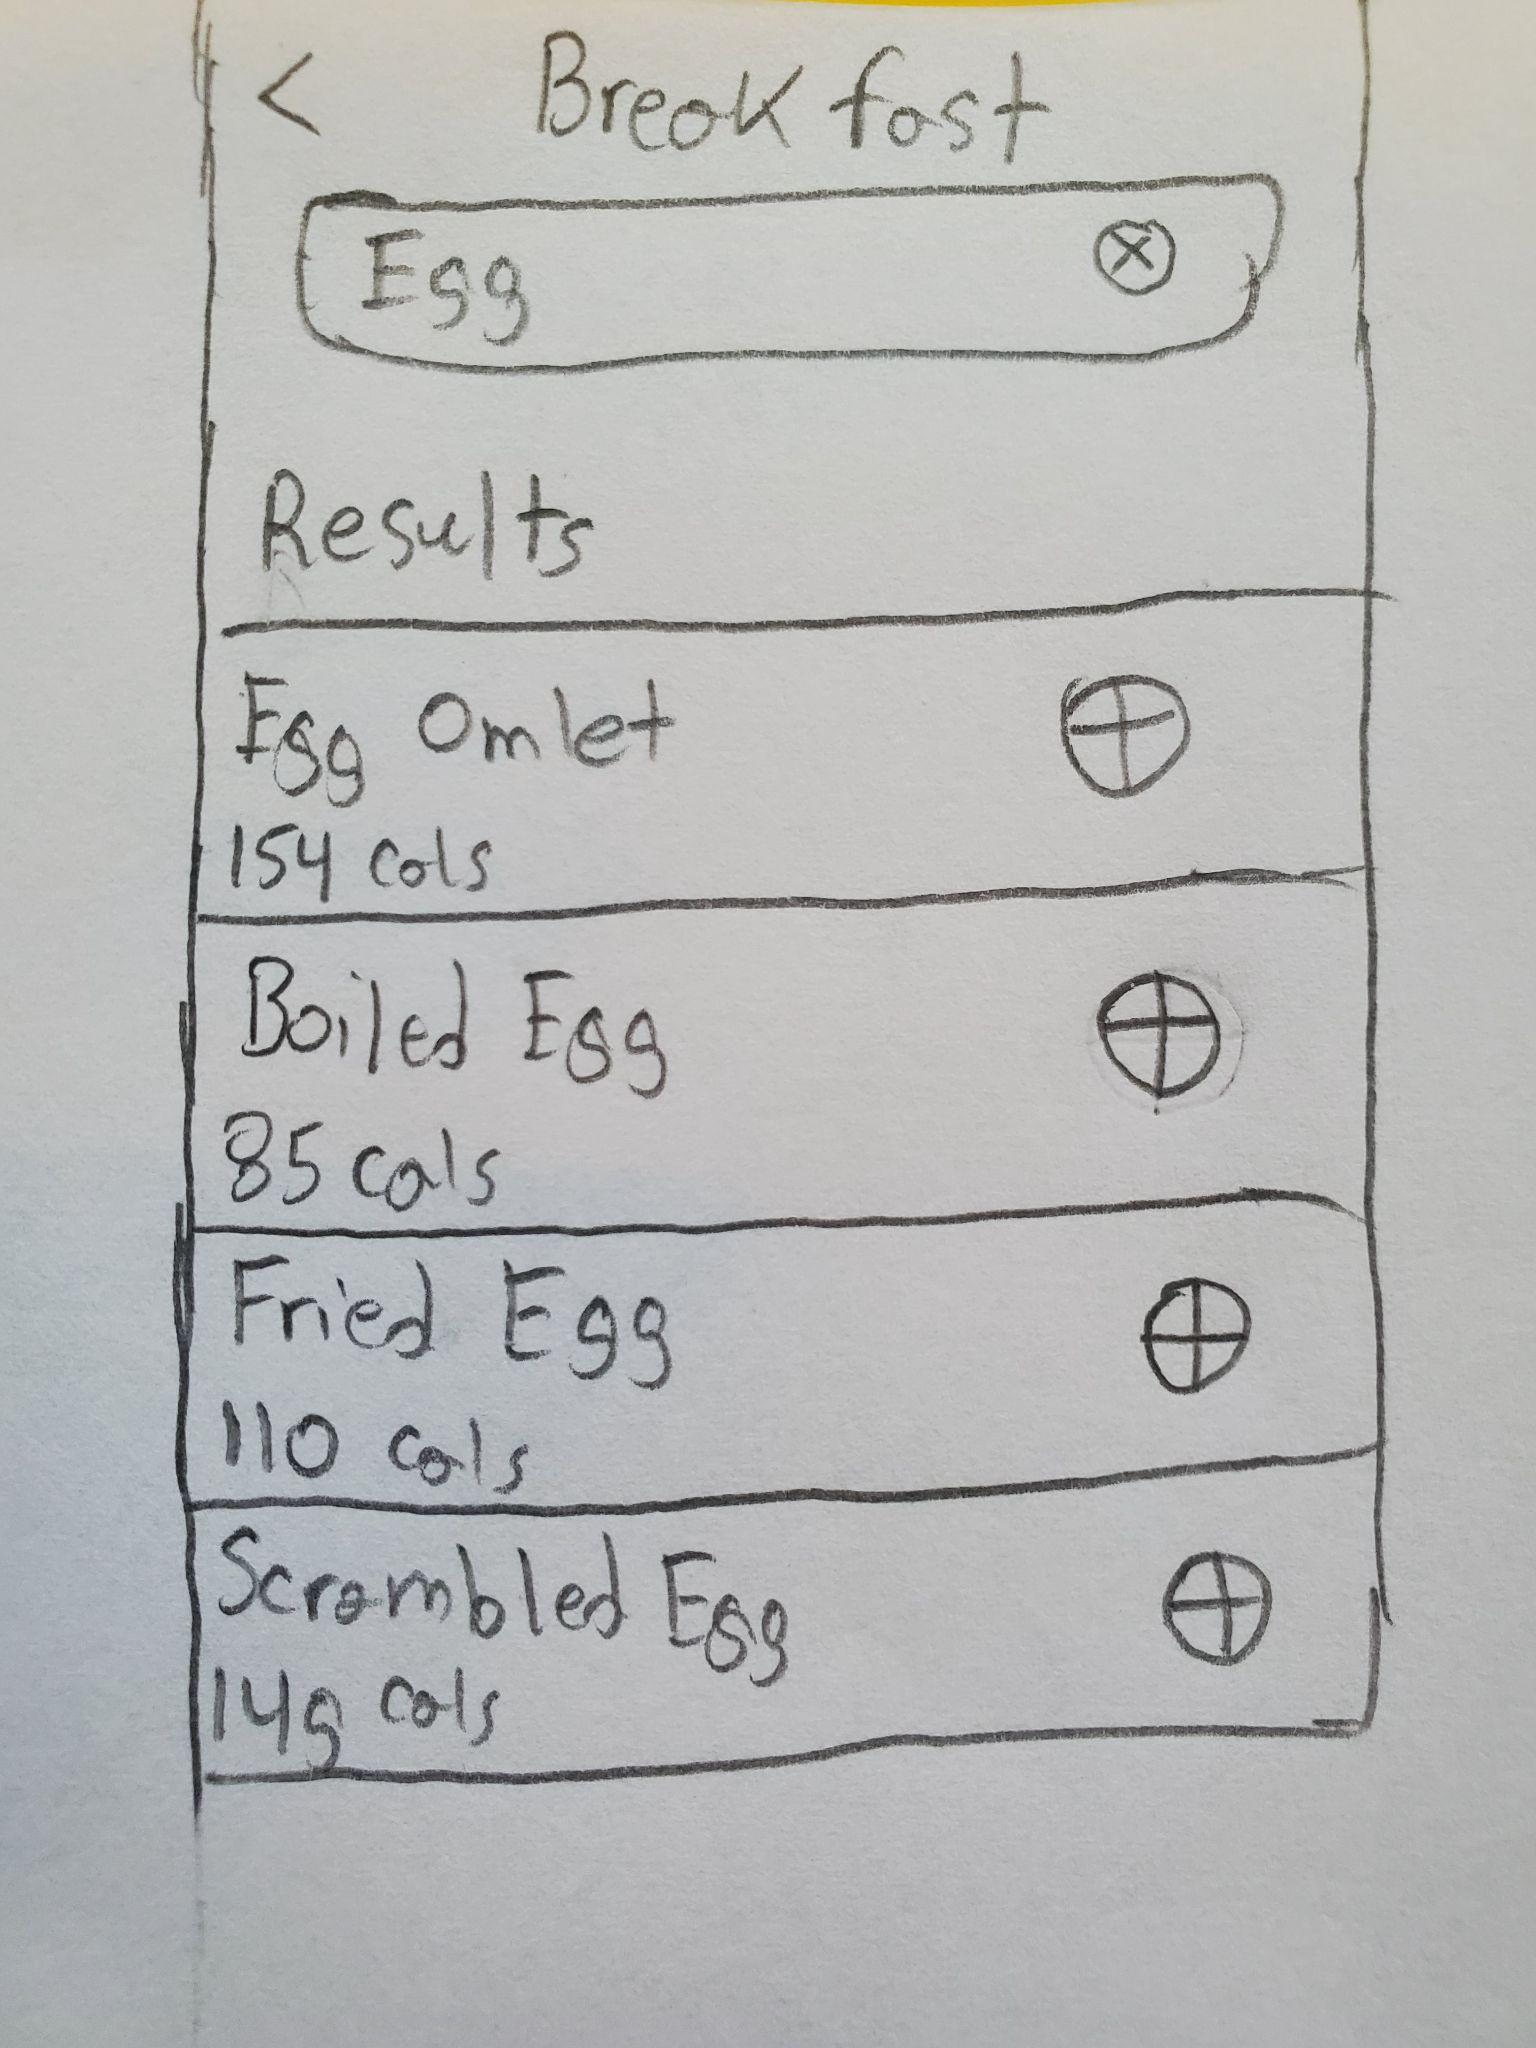 < Breakfast
Egg
Results
Egg Omlet
154 cals
Boiled Egg
85 cals
Fried Egg
110 cals
Scrambled Egg
149 cals